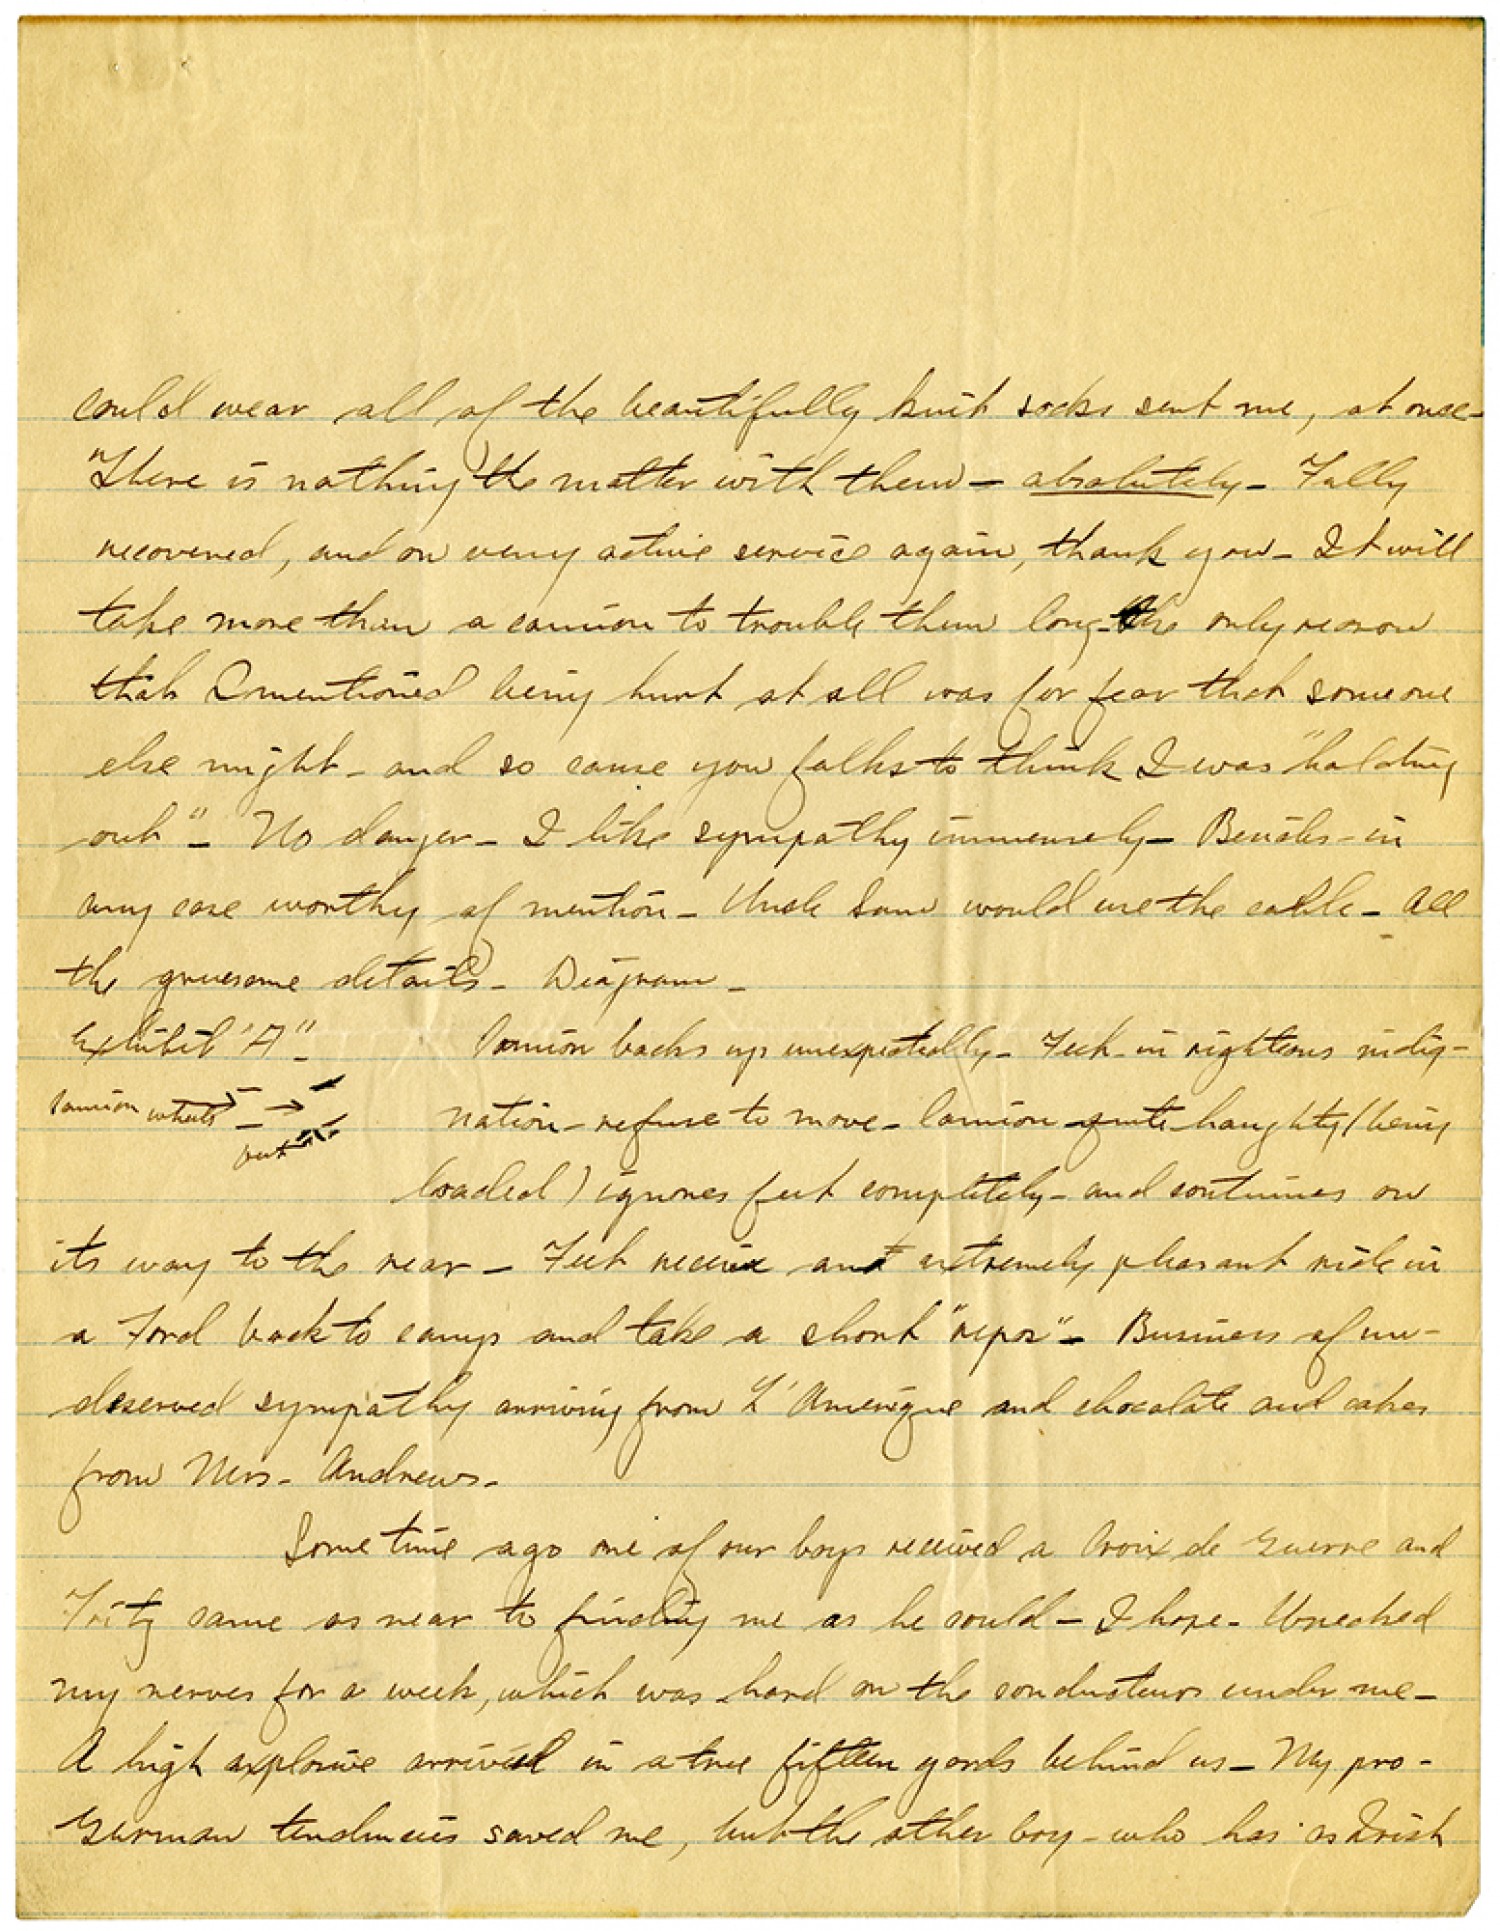 could wear all of the beautifully knit socks sent me, at once-
"There is nothing the matter with them - absolutely - Fully
recovered, and on very active service again, thank you - It will
take more than a camion to trouble them long - the only reason
that I mentioned being hurt at all was for fear that someone
else might - and so cause you folks to think I was "holding
out" - No danger - I like sympathy immensely - Besides - in
any case worthy of mention - Uncle Sam would use the cable - All
the gruesome details - Diagram -
Exhibit "A" - Camion backs up unexpectedly - Feet - in righteous indig-
camion wheels nation - refuse to move - Camion quite haughty (being
feet loaded) ignores feet completely - and continues on
its way to the rear - Feet receive an extremely pleasant ride in
a Ford back to camp and take a short "repos" - Business of un-
deserved sympathy arriving from L'Amerique and chocolate and cakes
from Mrs - Andrews -
Some time ago one of our boys received a Croix de Guerre and
Fritz came as near to finding me as he could - I hope - Wrecked
my nerves for a week, which was hard on the conducteurs under me -
A high explosive arrived in a tree fifteen yards behind us - My pro-
German tendencies saved me, but the other boy - who has as Irish